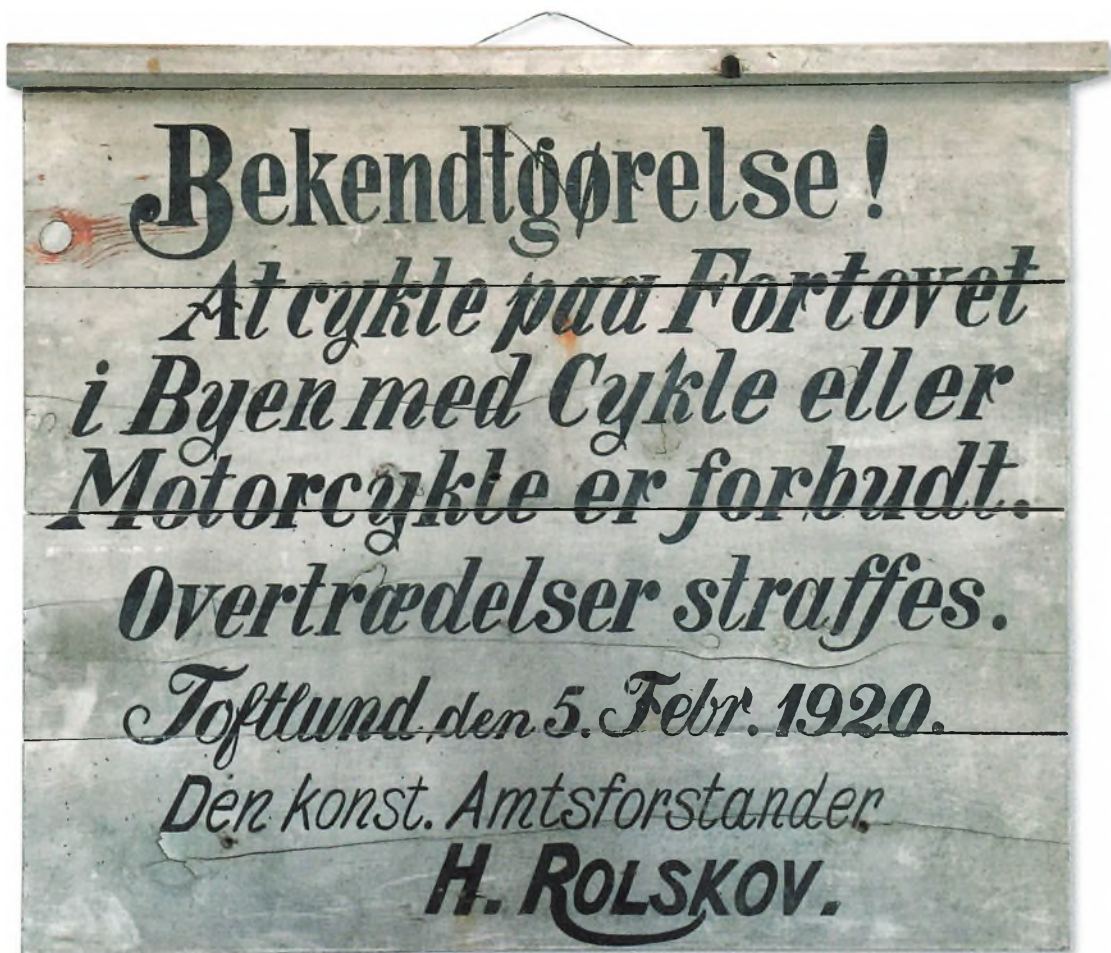 Bekendtgørelse!
At cykle paa Fortovet
i Byen med Cykle eller
Motorcykle er forbudt.
Overtrædelser straffes.
Toftlund den 5. Febr. 1920.
Den konst. Amtsforstander
H. ROLSKOV.